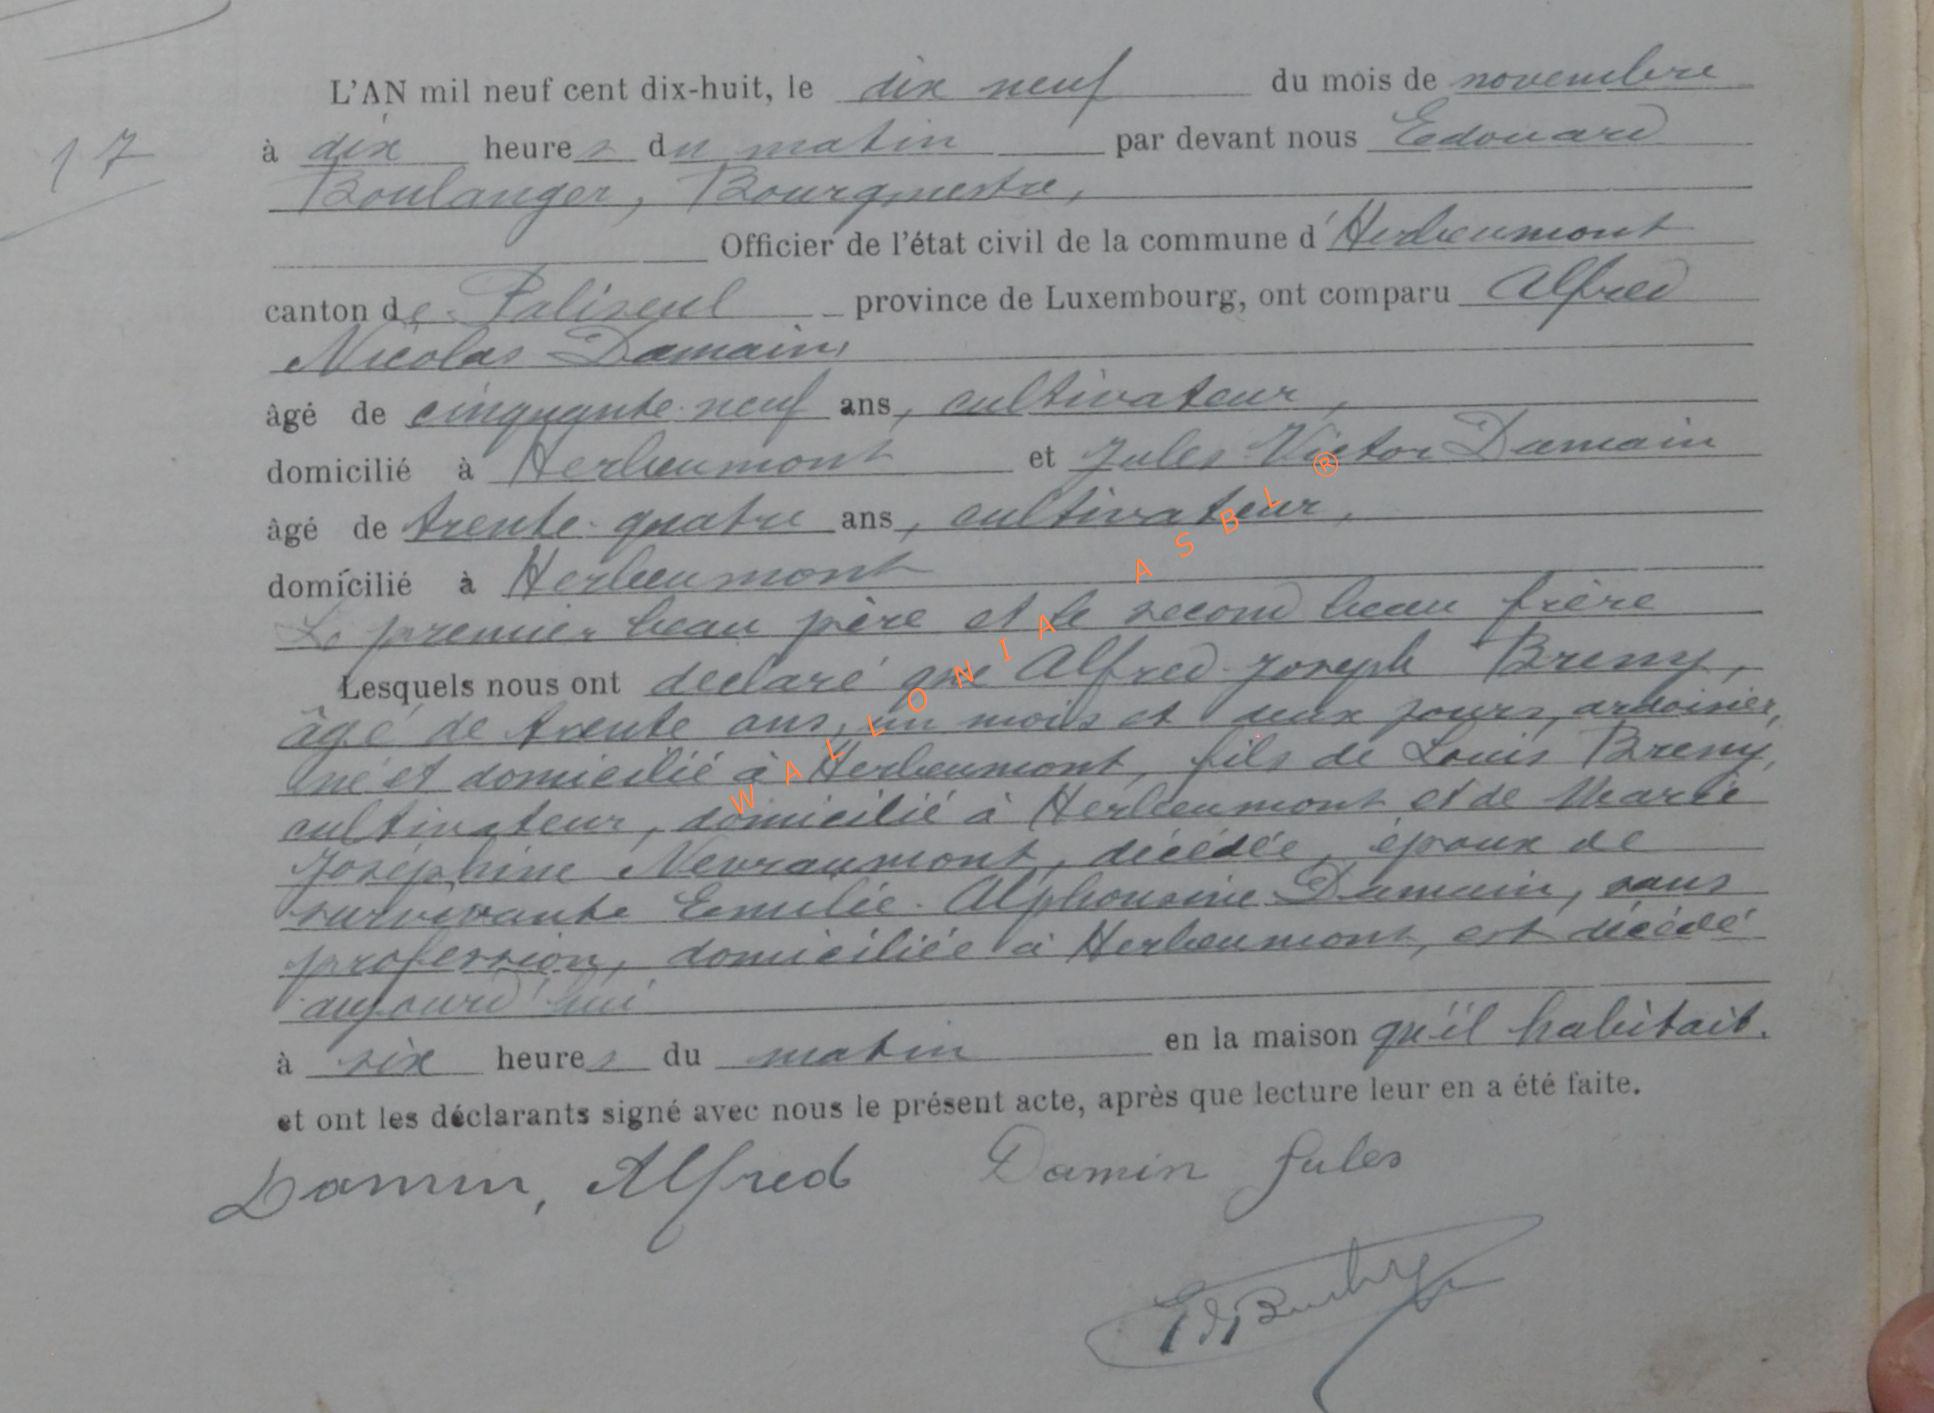 L'AN mil neuf cent dix-huit, le dix neuf du mois de novembre
17
à dix heures du matin par devant nous Edouard
Boulanger, Bourgmestre,
Officier de l'état civil de la commune d'Herbeumont
canton de Paliseul province de Luxembourg, ont comparu Alfred
Nicolas Damain,
âgé de cinquante-neuf ans, cultivateur,
domicilié à Herbeumont et Jules Victor Damain
âgé de trente-quatre ans, cultivateur,
domicilié à Herbeumont
Le premier beau père et le second beau frère
Lesquels nous ont déclaré que Alfred-Joseph Breny,
âgé de trente ans, un mois et deux jours, ardoisier,
né et domicilié à Herbeumont, fils de Louis Breny,
cultivateur, domicilié à Herbeumont et de Marie
Joséphine Nevraumont, décédée, époux de
survivante Emilie-Alphonsine Damain, sans
profession, domiciliée à Herbeumont, est décédé
aujourd'hui
à six heures du matin en la maison qu'il habitait.
et ont les déclarants signé avec nous le présent acte, après que lecture leur en a été faite.
Damin, Alfred Damin Jules
WALLONIA ASBL ®